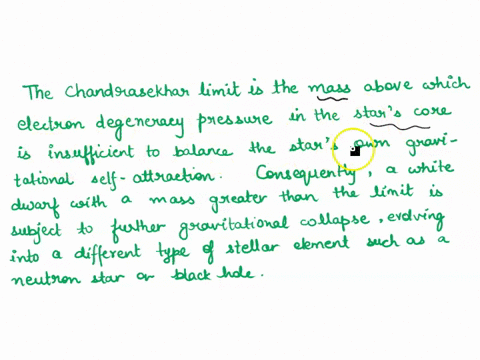 The Chandrasekhar limit is the mass above which
electron degeneracy pressure in the star's core
is insufficient to balance the star's own gravi-
tational self-attraction. Consequently, a white
dwarf with a mass greater than the limit is
subject to further gravitational collapse, evolving
into a different type of stellar element such as a
neutron star or black hole.